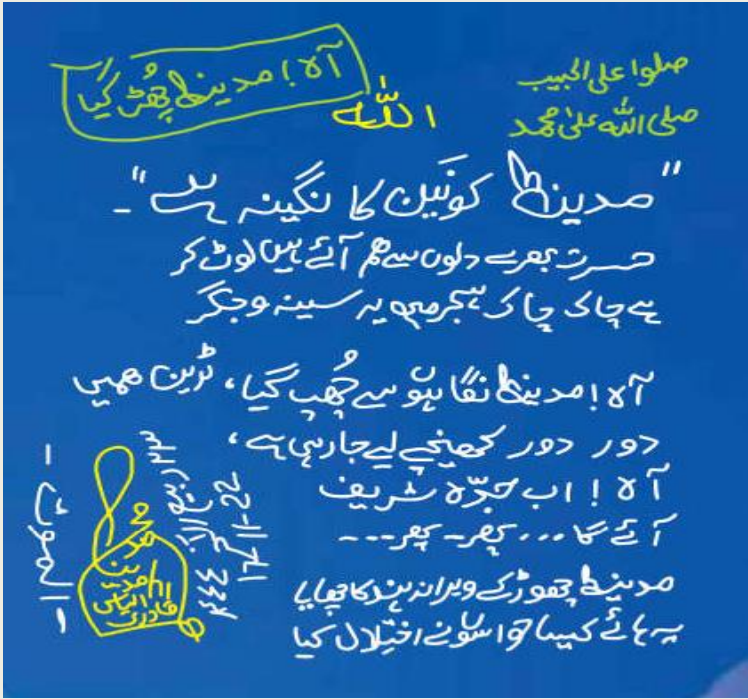 صلوا علی الحبیب
صلی اللہ علیٰ محمد
آہ! مدینہ چُھڑ گیا
اللہ
"مدینہ کونَین کا نگینہ ہے"۔
حسرت بھرے دلوں سے ہم آئے ہیں لوٹ کر
ہے چاک چاک ہجر میں یہ سینہ و جگر
آہ! مدینہ نگاہوں سے چُھپ گیا، ٹرین ہمیں
دور دور کھینچے لیے جارہی ہے،
آہ! اب جدّہ شریف
آئے گا... پھر- پھر---
مدینہ چھوڑ کے ویرانہ ہند کا چھایا
یہ ہائے کیسا حواسوں نے اختِلال کیا
محمد
الیاس
قادری
۱۴۴۴
17-11-22